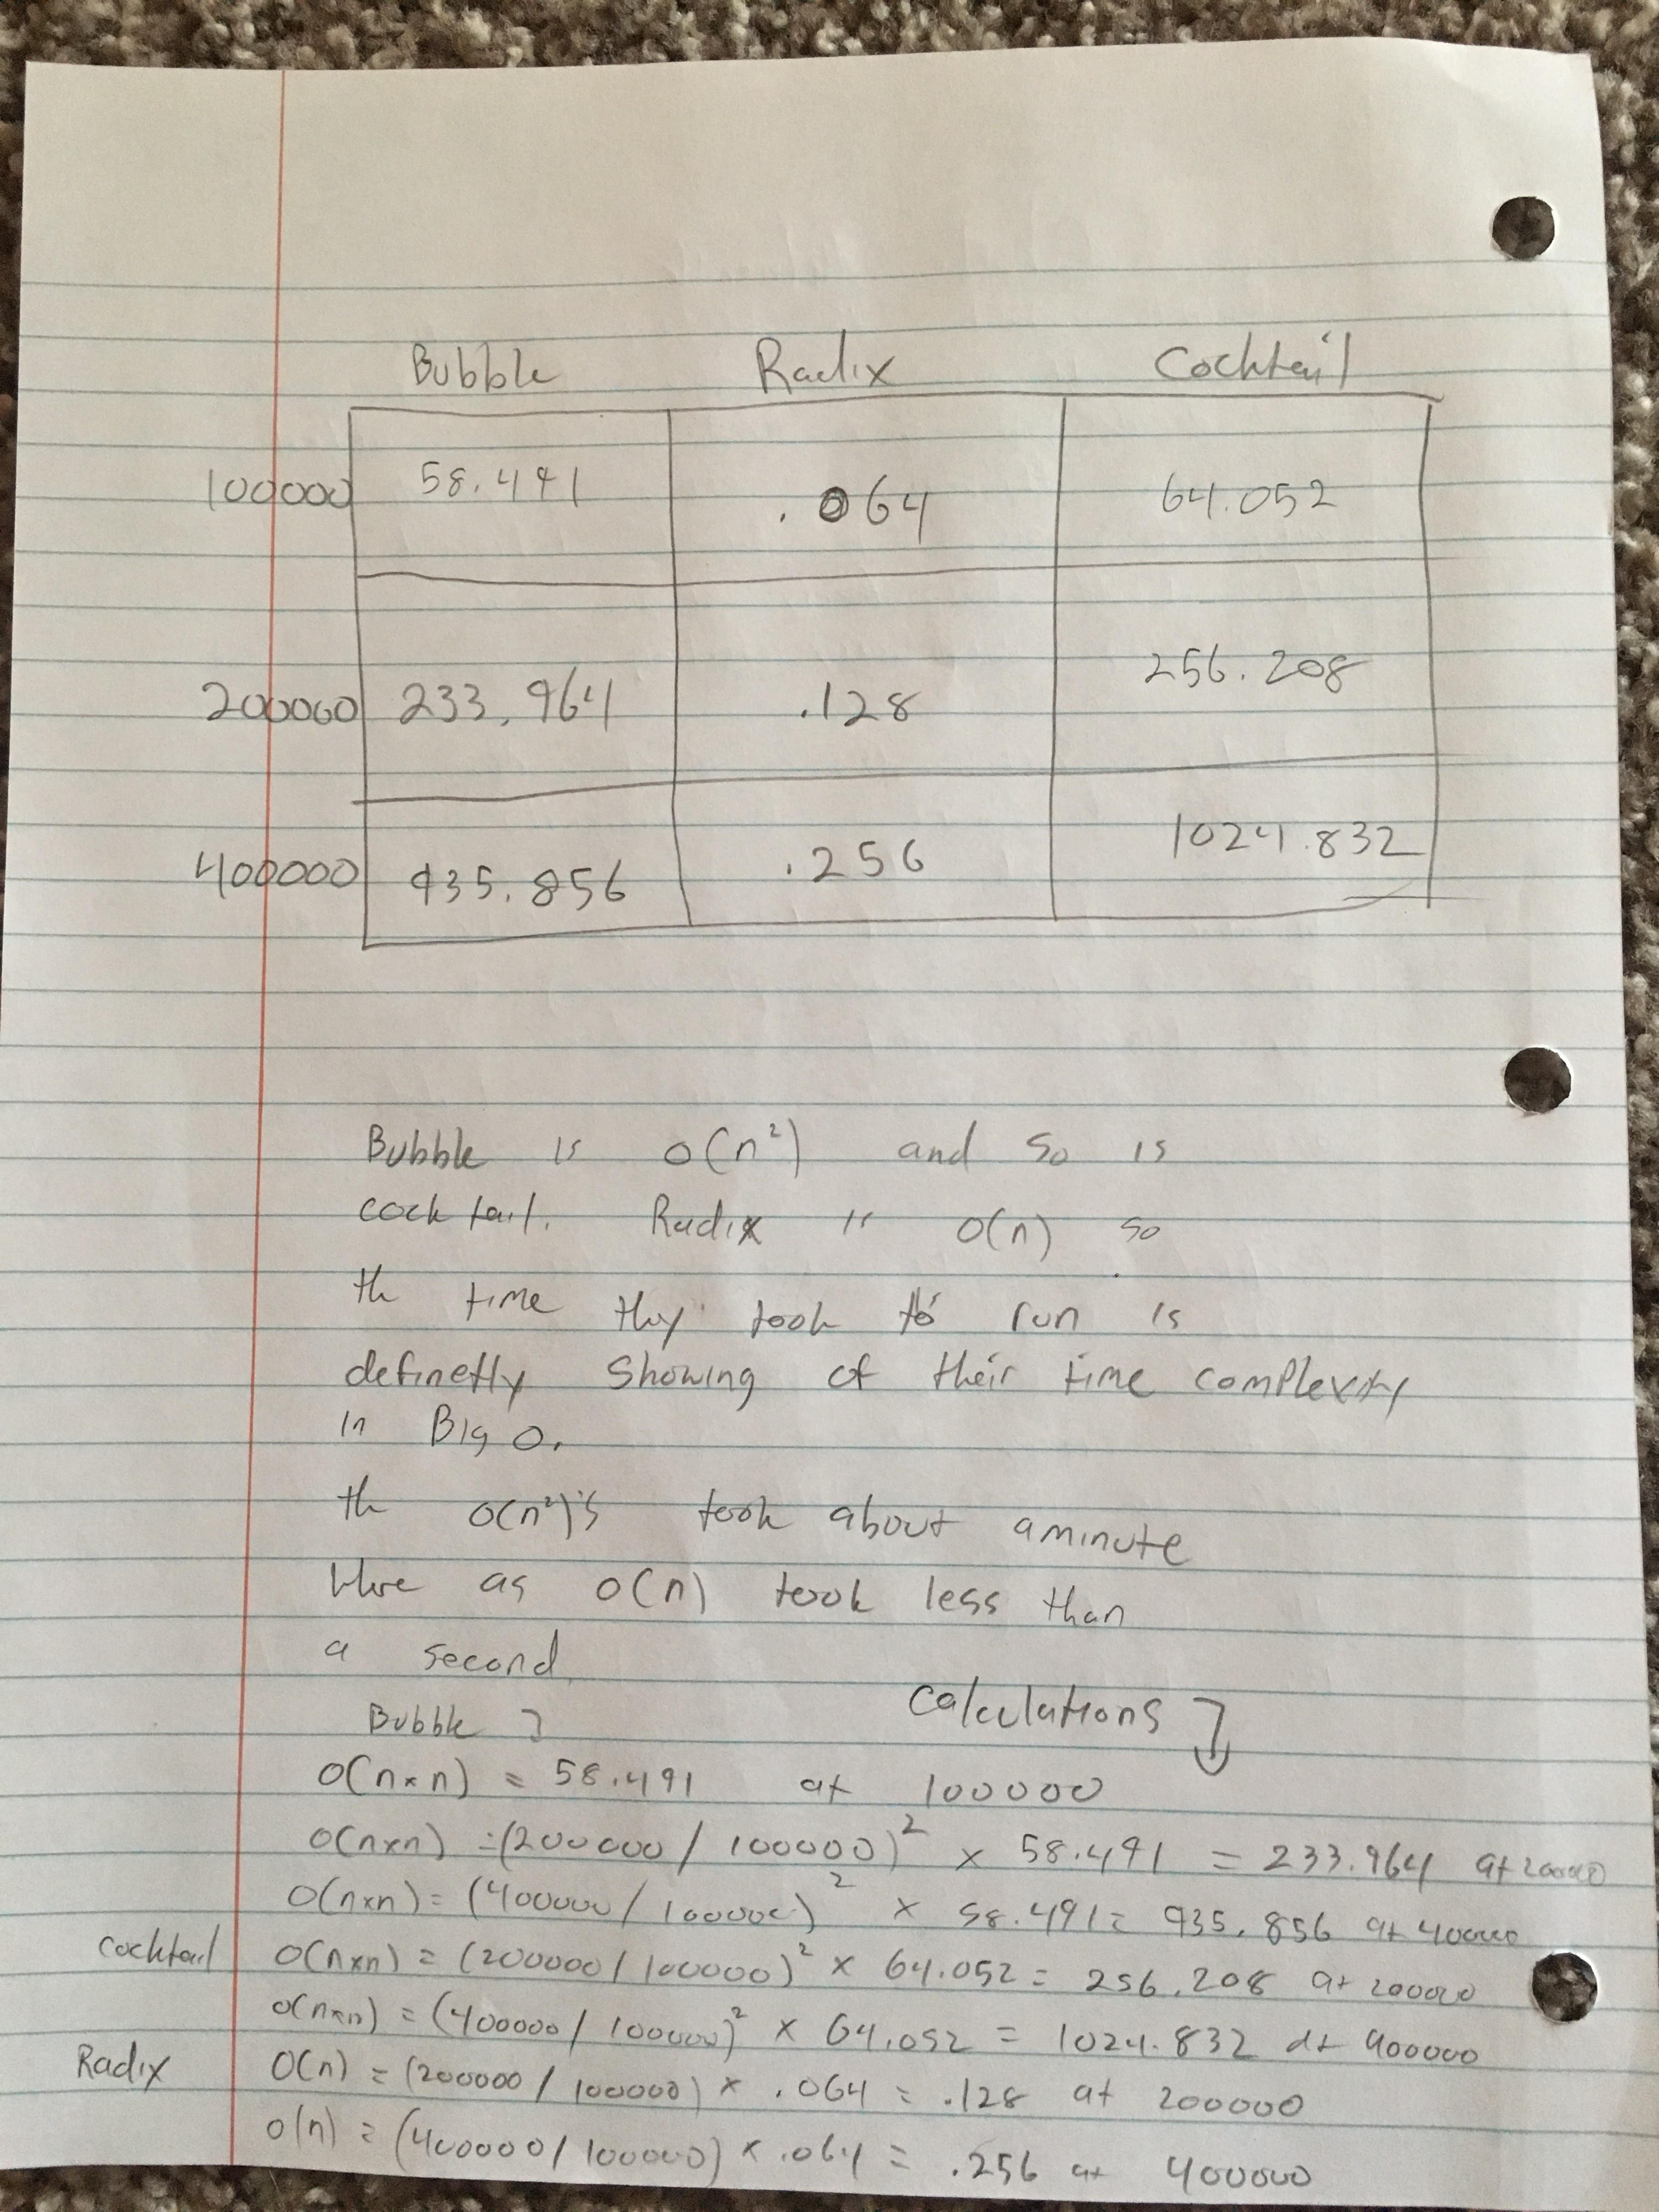 Bubble Radix Cocktail
100000 58.491 .064 64.052
200000 233.964 .128 256.208
400000 935.856 .256 1024.832
Bubble is O(n²) and so is
cocktail. Radix is O(n) so
th time thy took to run is
definetly showing of their time complexity
in Big O.
th O(n²)'s took about a minute
Where as O(n) took less than
a second
Bubble Calculations
O(n×n) = 58.491 at 100000
O(n×n) = (200000 / 100000)² × 58.491 = 233.964 at 200000
O(n×n) = (400000 / 100000)² × 58.491 = 935.856 at 400000
Cocktail O(n×n) = (200000 / 100000)² × 64.052 = 256.208 at 200000
O(n×n) = (400000 / 100000)² × 64.052 = 1024.832 at 400000
Radix O(n) = (200000 / 100000) × .064 = .128 at 200000
O(n) = (400000 / 100000) × .064 = .256 at 400000